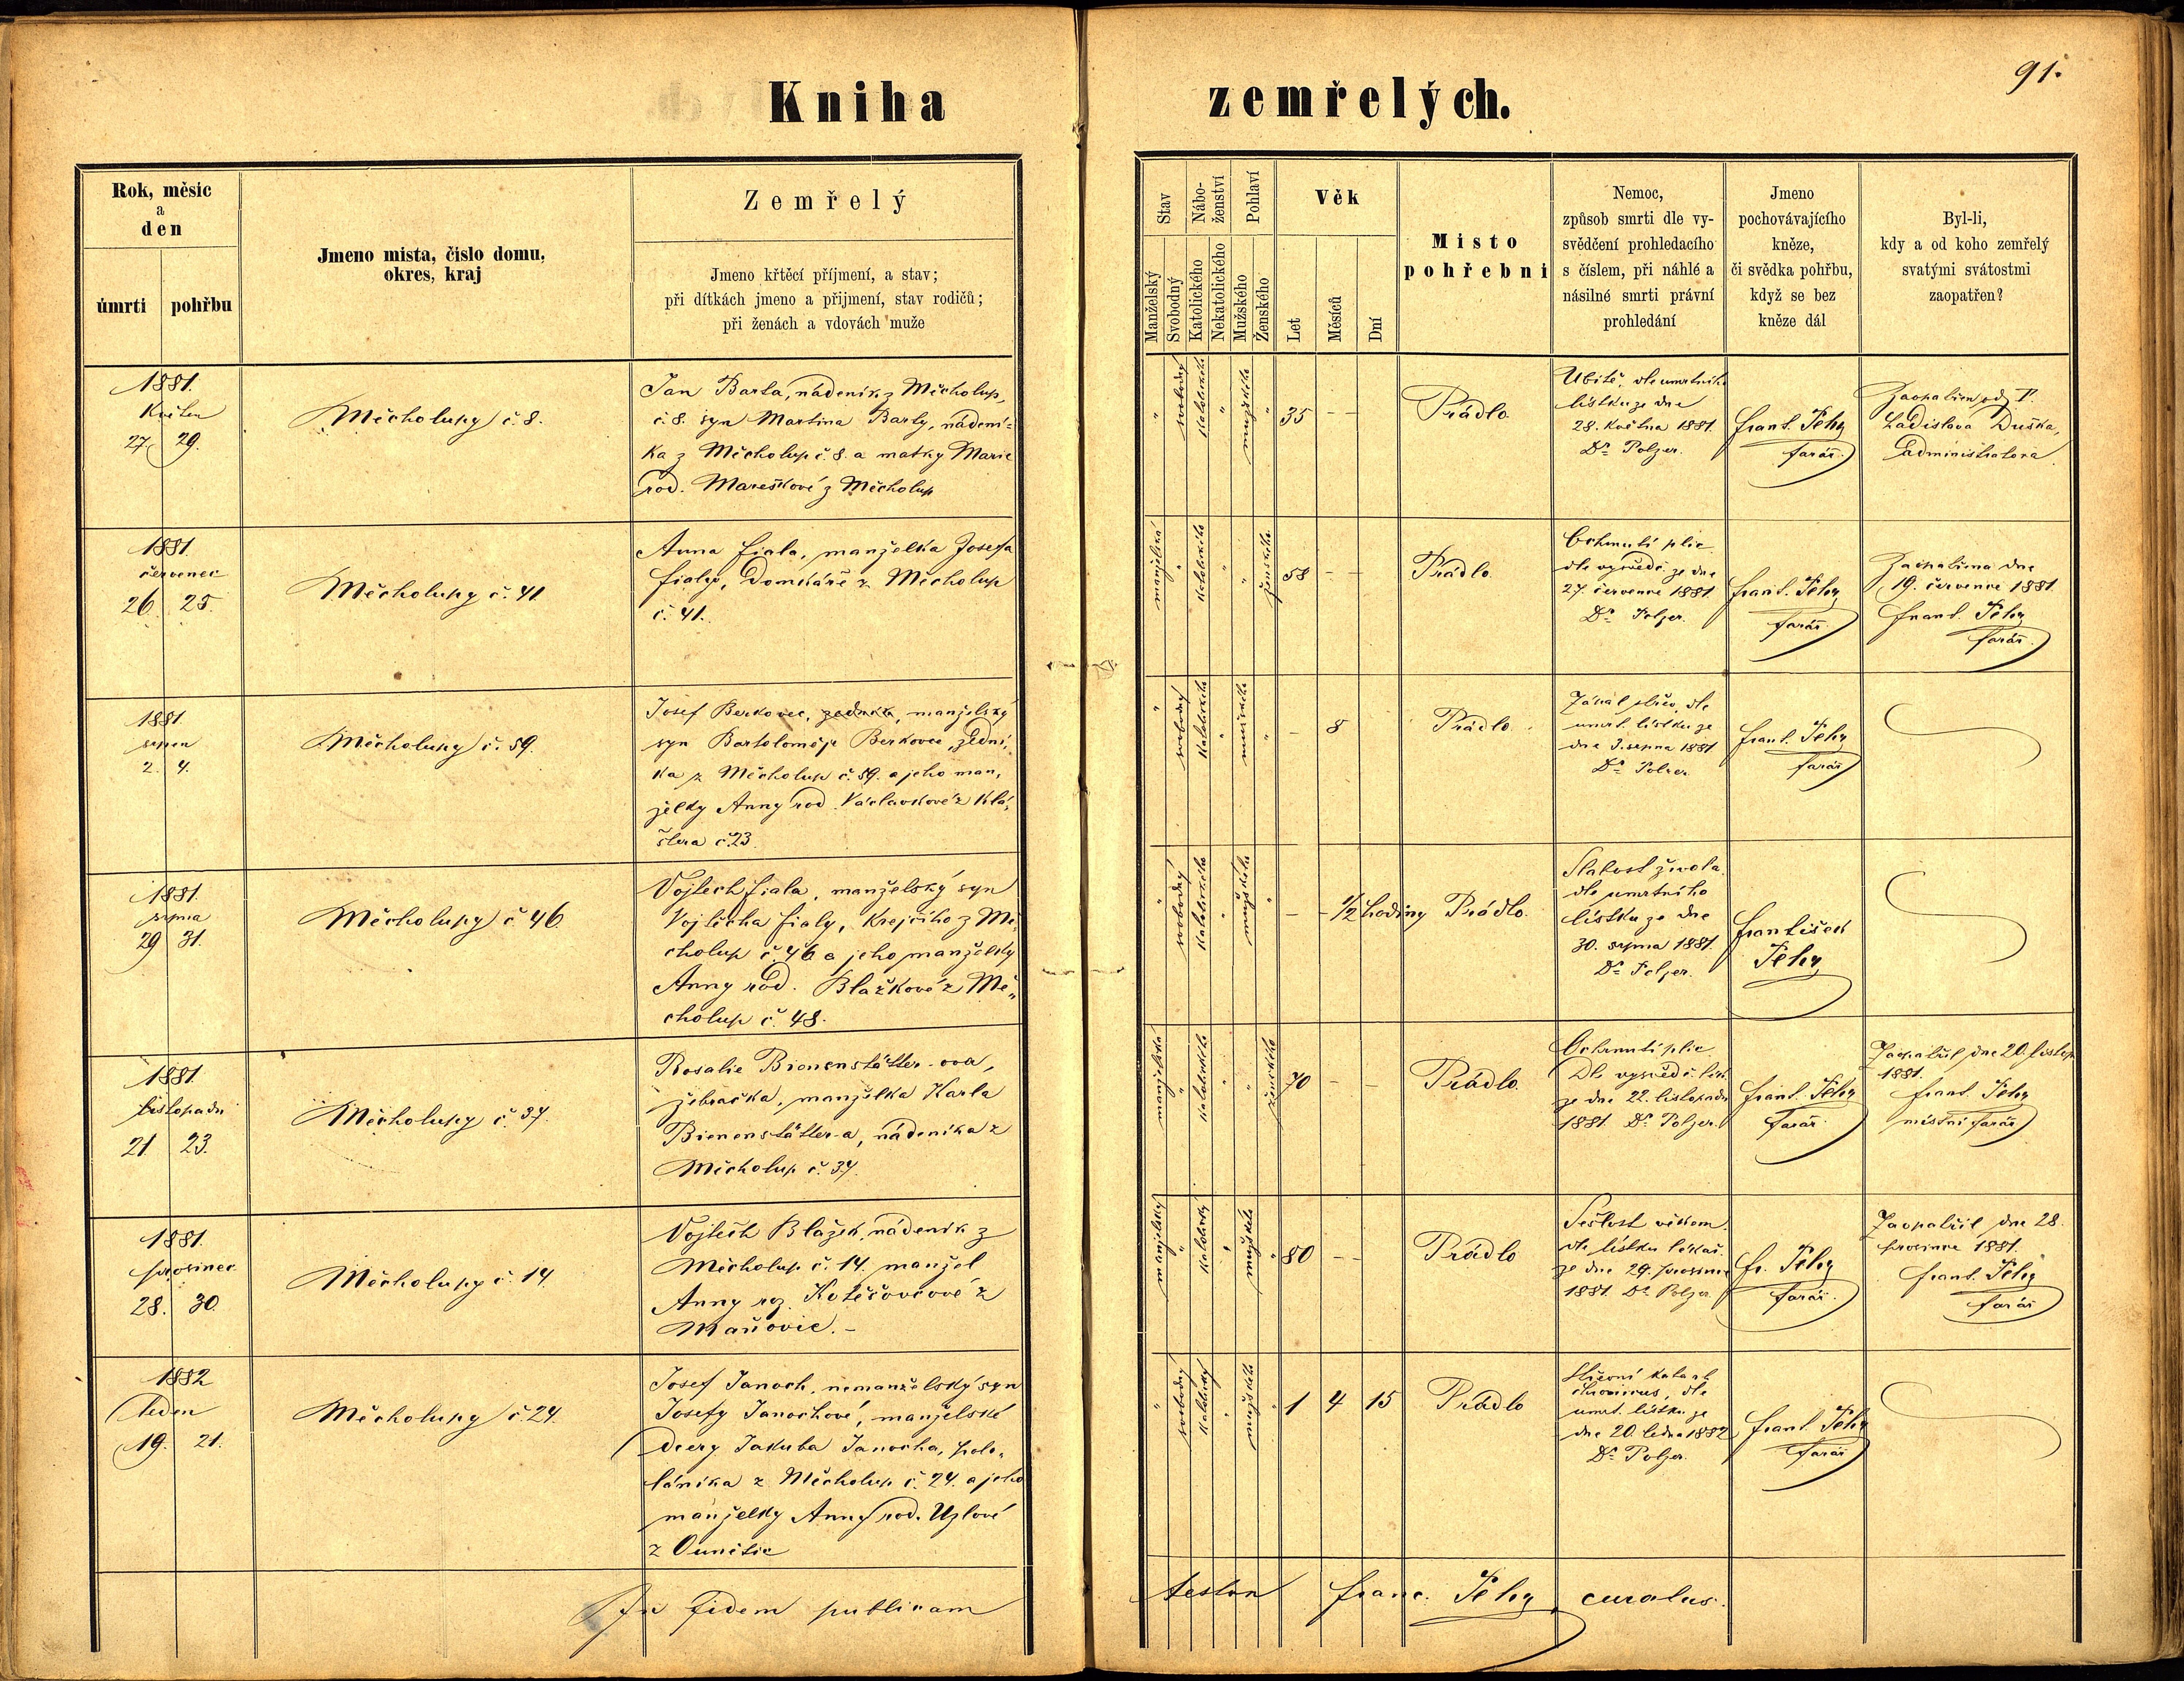 91.
Kniha zemřelých.
Rok, měsic
a
den
úmrti
pohřbu
Jmeno mista, čislo domu,
okres, kraj
Zemřelý
Jmeno křtěcí příjmení, a stav;
při dítkách jmeno a přijmení, stav rodičů;
při ženách a vdovách muže
Stav
Nábo-
ženství
Pohlaví
Věk
Manželský
Svobodný
Katolického
Nekatolického
Mužského
Ženského
Let
Měsíců
Dní
Misto
pohřebni
Nemoc,
způsob smrti dle vy-
svědčení prohledacího
s číslem, při náhlé a
násilné smrti právní
prohledání
Jmeno
pochovávajícího
kněze,
či svědka pohřbu,
když se bez
kněze dál
Byl-li,
kdy a od koho zemřelý
svatými svátostmi
zaopatřen?
1881.
Květen
27 29.
Měcholupy č. 8.
Jan Barta, nádeník z Měcholup,
č. 8. syn Martina Barty, nádení-
ka z Měcholup č. 8. a matky Marie
rod. Mareškové z Měcholup
" svobodný katolického " mužského " 35 - -
Prádlo
dle umrtního
lístku ze dne
28. Května 1881.
Dr. Polzer.
Frant. Petry
farář.
Zaopatřen od P.
Ladislava Duška,
Administratora
1881.
červenec
26 25.
Měcholupy č. 41
Anna Fiala, manželka Josefa
Fialy, Domkáře z Měcholup
č. 41.
manželská " katolického " " ženského 58 - -
Prádlo.
Ochrnutí plic
dle vysvědč. ze dne
27. července 1881
Dr. Polzer.
Frant. Petry
farář.
Zaopatřena dne
19. července 1881.
Frant. Petry
farář.
1881
srpen
2. 4.
Měcholupy č. 59.
Josef Berkovec, manželský
syn Bartoloměje Berkovce, zední-
ka z Měcholup č. 59. a jeho man-
želky Anny rod. Václavkové z Klá-
štera č. 23.
" svobodný katolického " mužského " - 8
Prádlo.
Zánět střev, dle
umrt. lístku ze
dne 3. srpna 1881
Dr. Polzer
Frant. Petry
farář
1881.
srpna
29 31.
Měcholupy č. 46.
Vojtech Fiala, manželský syn
Vojtěcha Fialy, Krejčího z Mě-
cholup č. 46 a jeho manželky
Anny rod. Blažkové z Mě-
cholup č. 48.
" svobodný katolického " mužského " - - 1/2 hodiny
Prádlo.
Slabost života
dle umrtního
lístku ze dne
30. srpna 1881.
Dr. Polzer.
František
Petry
1881.
listopadu
21 23.
Měcholupy č. 37.
Rosalie Bienenstätter-ova,
žebračka, manželka Karla
Bienenstätter-a, nádeníka z
Měcholup č. 37.
manželská " katolického " " ženského 70 - -
Prádlo.
Ochrnutí plic
Dle vysvědč. lék.
ze dne 22. listopadu
1881. Dr. Polzer.
Frant. Petry
farář.
Zaopatřil dne 20. listop.
1881.
Frant. Petry
místní farář
1881.
prosinec
28. 30.
Měcholupy č. 14.
Vojtěch Blažek, nádeník z
Měcholup č. 14. manžel
Anny roz. z
Maňovic. -
manželský " katolický " mužského " 80 - -
Prádlo
Sešlost věkem.
dle lístku lékař.
ze dne 29. prosince
1881. Dr. Polzer
Fr. Petry
farář.
Zaopatřil dne 28.
prosince 1881.
Frant. Petry
farář
1882
leden
19. 21.
Měcholupy č. 24.
Josef Janoch, nemanželský syn
Josefy Janochové, manželské
dcery Jakuba Janocha, polo-
láníka z Měcholup č. 24. a jeho
manželky Anny rod. Uzlové
z Ounětic
" svobodný katolický " mužského " 1 4 15
Prádlo
Střevní katarh
chronicus, dle
umrt. lístku ze
dne 20. ledna 1882
Dr. Polzer.
Frant. Petry
farář
In fidem publicam testor Franc. Petry curatus.